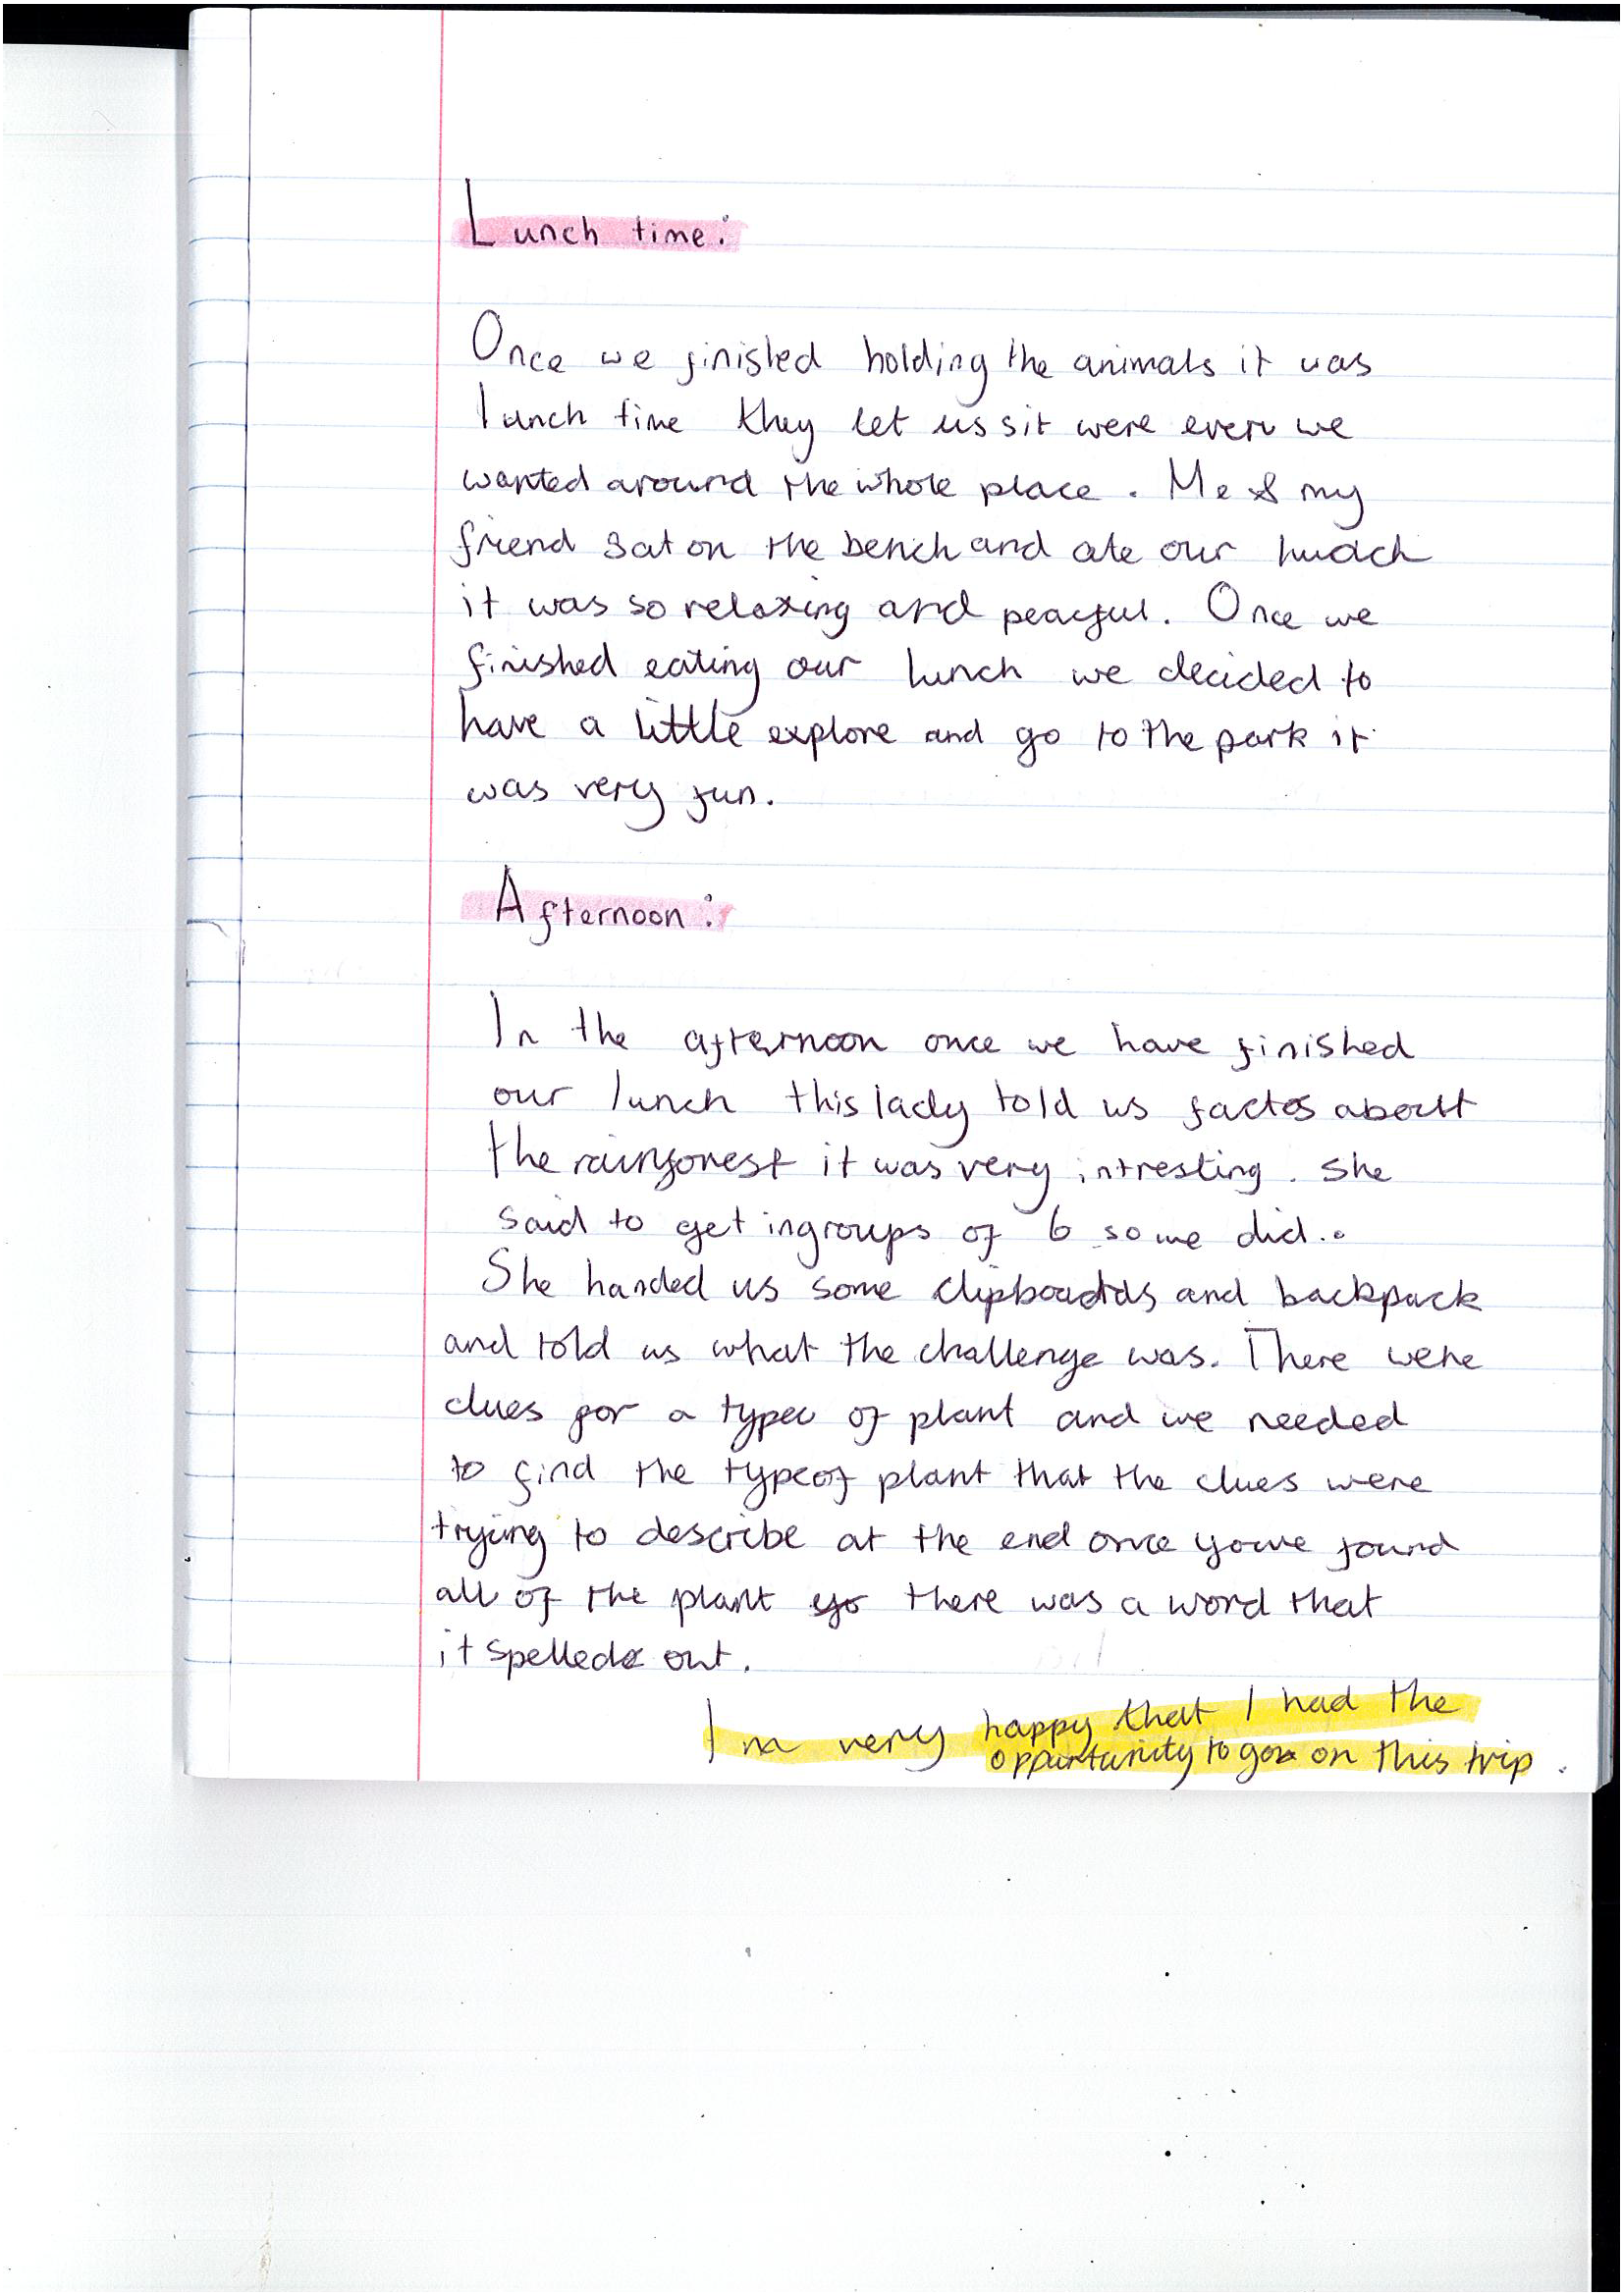 Lunch time:
Once we finished holding the animals it was
lunch time they let us sit were ever we
wanted around the whole place. Me & my
friend sat on the bench and ate our lunch
it was so relaxing and peacful. Once we
finished eating our lunch we decided to
have a little explore and go to the park it
was very fun.
Afternoon:
In the afternoon once we have finished
our lunch this lady told us facts about
the rainforest it was very intresting. she
said to get in groups of 6 so we did..
She handed us some clipboards and backpack
and told us what the challenge was. There were
clues for a type of plant and we needed
to find the type of plant that the clues were
trying to describe at the end once youve found
all of the plant there was a word that
it spelled out.
Im very happy that I had the
oppurtunity to go on this trip.